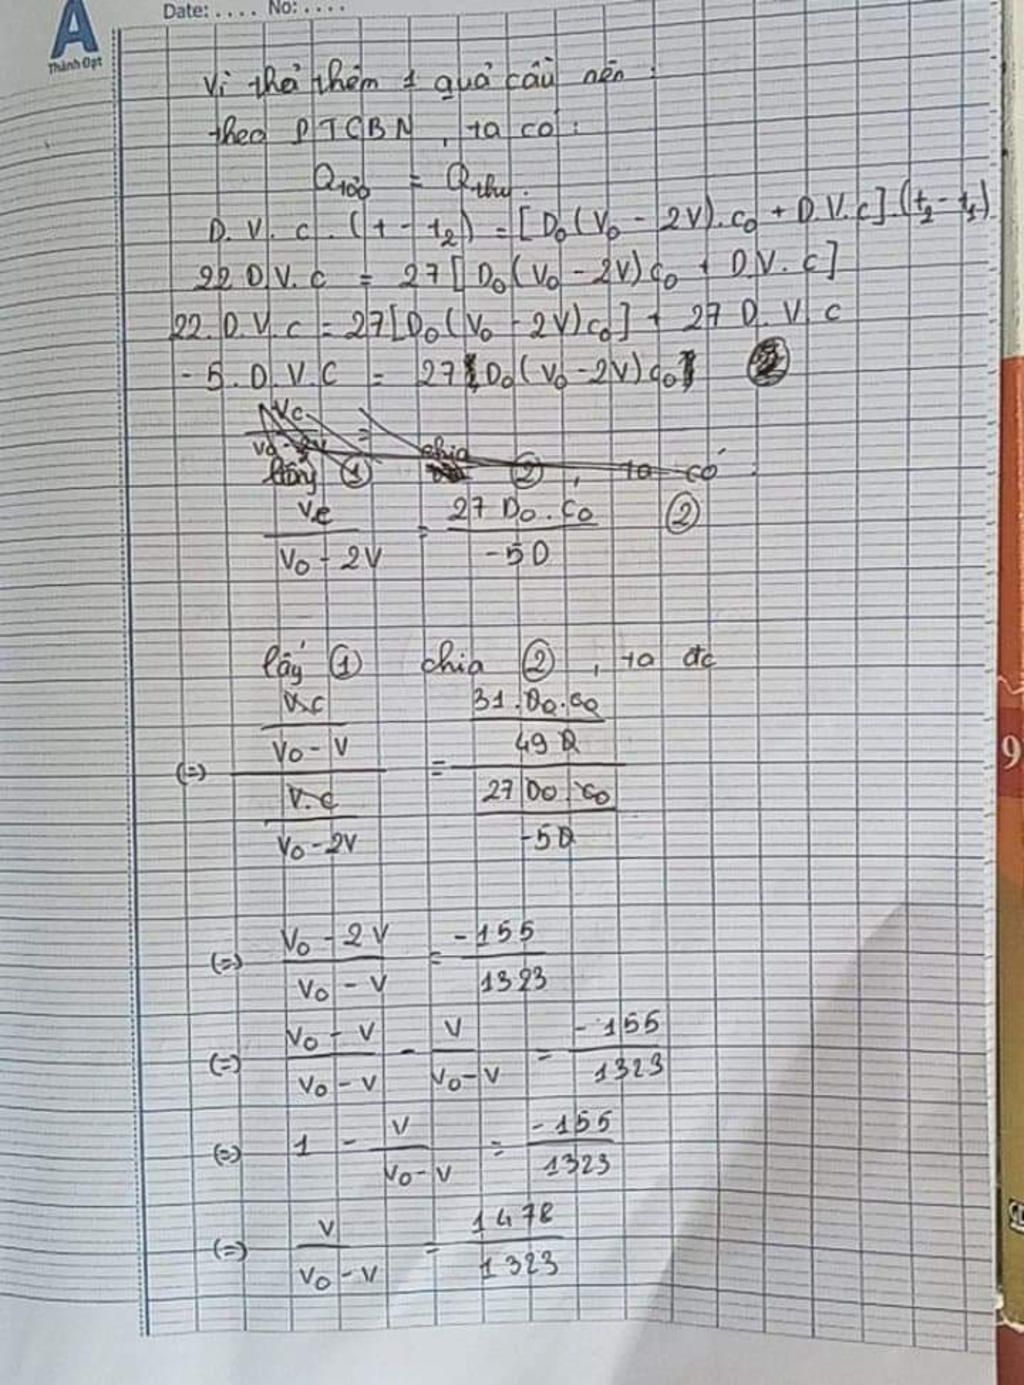 A
Thành Đạt
Date: .... No: ....
Vì thả thêm 1 quả cầu nên :
theo PTCBN, ta có :
Qtỏa = Qthu.
D. V. c. (t - t₂) = [D₀(V₀ - 2V).c₀ + D.V.c].(t₂ - t₁)
22 D.V.c = 27[D₀(V₀ - 2V)c₀ + D.V.c]
22.D.V.c = 27[D₀(V₀ - 2V)c₀] + 27 D.V.c
-5.D.V.C = 27 D₀(V₀-2V)c₀
lấy ① chia ②, ta có :
Vc / (V₀ - 2V) = 27 D₀.c₀ / -5D ②
lấy ① chia ②, ta đc
(=) (V.c / (V₀ - V)) / (V.c / (V₀ - 2V)) = (31.D₀.c₀ / 49D) / (27 D₀.c₀ / -5D)
(=) (V₀ - 2V) / (V₀ - V) = -155 / 1323
(=) (V₀ - V) / (V₀ - V) - V / (V₀ - V) = -155 / 1323
(=) 1 - V / (V₀ - V) = -155 / 1323
(=) V / (V₀ - V) = 1478 / 1323
9